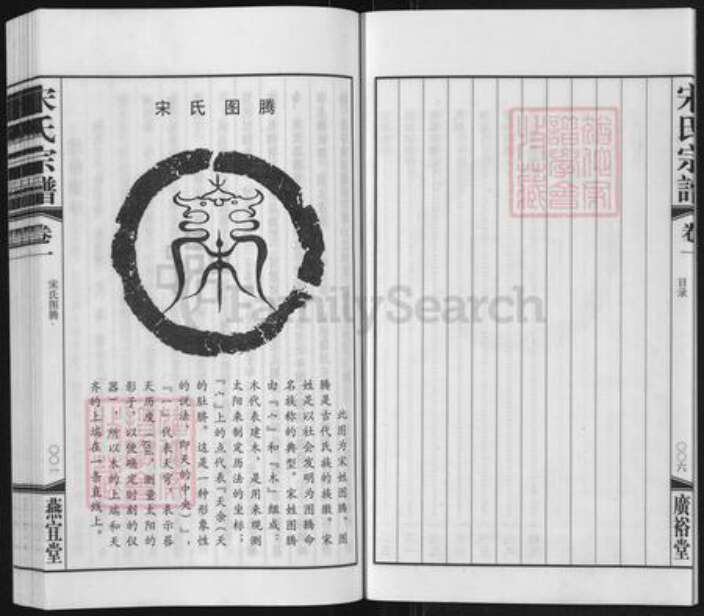 宋氏宗譜
卷一
目录
〇〇六
廣裕堂
宋氏图腾
此图为宋姓图腾。图
腾是古代氏族的族徽。宋
姓是以社会发明为图腾命
名族称的典型。宋姓图腾
由『宀』和『木』组成：
木代表建木，是用来观测
太阳来制定历法的坐标；
『宀』上的点代表『天荣（天
的肚脐。这是一种形象性
的说法，即天的中央）』，
『冖』代表天穹，表示莅
天历度
测量太阳的
影子，以便确定时刻的仪
器），所以木的上端和天
齐的上端在一条直线上。
宋氏宗譜
卷一
宋氏图腾
〇〇一
燕宜堂
FamilySearch